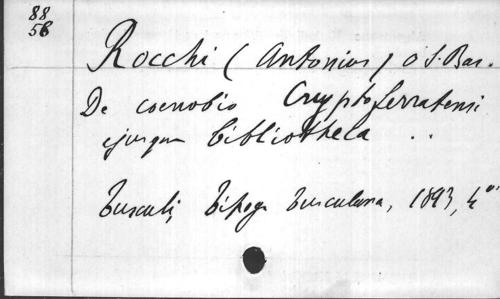 88
56
Rocchi (Antonius) O.S.Bas.
De coenobio Cryptoferratensi
ejusque bibliotheca ..
Tusculi, Tipogr. Tusculana, 1893, 4°.